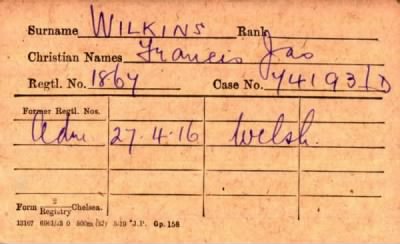 Surname WILKINS Rank
Christian Names Francis Jas
Regtl. No. 1867 Case No. 7/4193/D
Former Regtl. Nos.
Adm 27.4.16 Welsh.
Form 2/Registry Chelsea.
13167 6961/43 O 500m (52) 5/19 J.P. Gp. 156